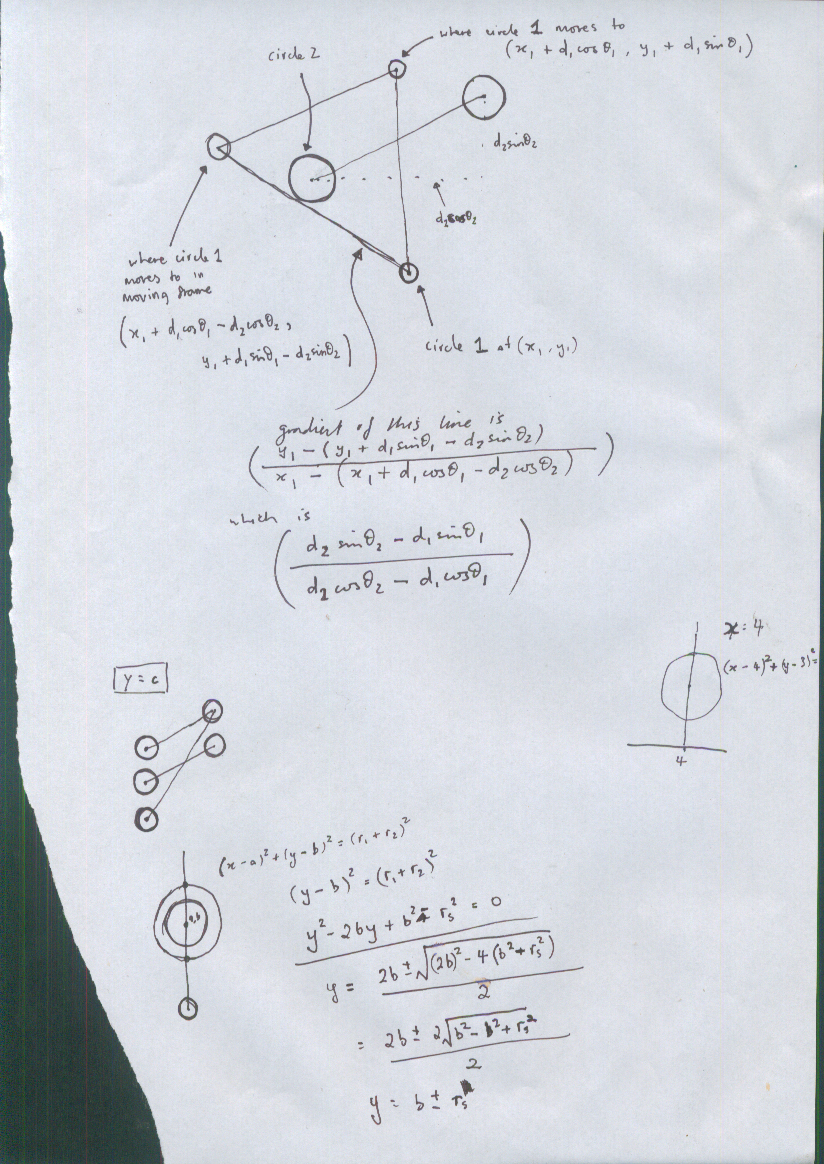 where circle 1 moves to
(x₁ + d₁cosθ₁ , y₁ + d₁sinθ₁)
circle 2
d₂sinθ₂
d₂cosθ₂
where circle 1
moves to in
moving frame
(x₁ + d₁cosθ₁ - d₂cosθ₂,
y₁ + d₁sinθ₁ - d₂sinθ₂)
circle 1 at (x₁, y₁)
gradient of this line is
y₁ - (y₁ + d₁sinθ₁ - d₂sinθ₂)
x₁ - (x₁ + d₁cosθ₁ - d₂cosθ₂)
which is
d₂ sinθ₂ - d₁sinθ₁
d₂cosθ₂ - d₁cosθ₁
x = 4
(x - 4)² + (y - 3)² =
4
y = c
(x - a)² + (y - b)² = (r₁ + r₂)²
(y - b)² = (r₁ + r₂)²
a,b
y² - 2by + b² - rₛ² = 0
y = 2b ± √(2b)² - 4(b² + rₛ²)
2
= 2b ± 2√b² - b² + rₛ²
2
y = b ± rₛ